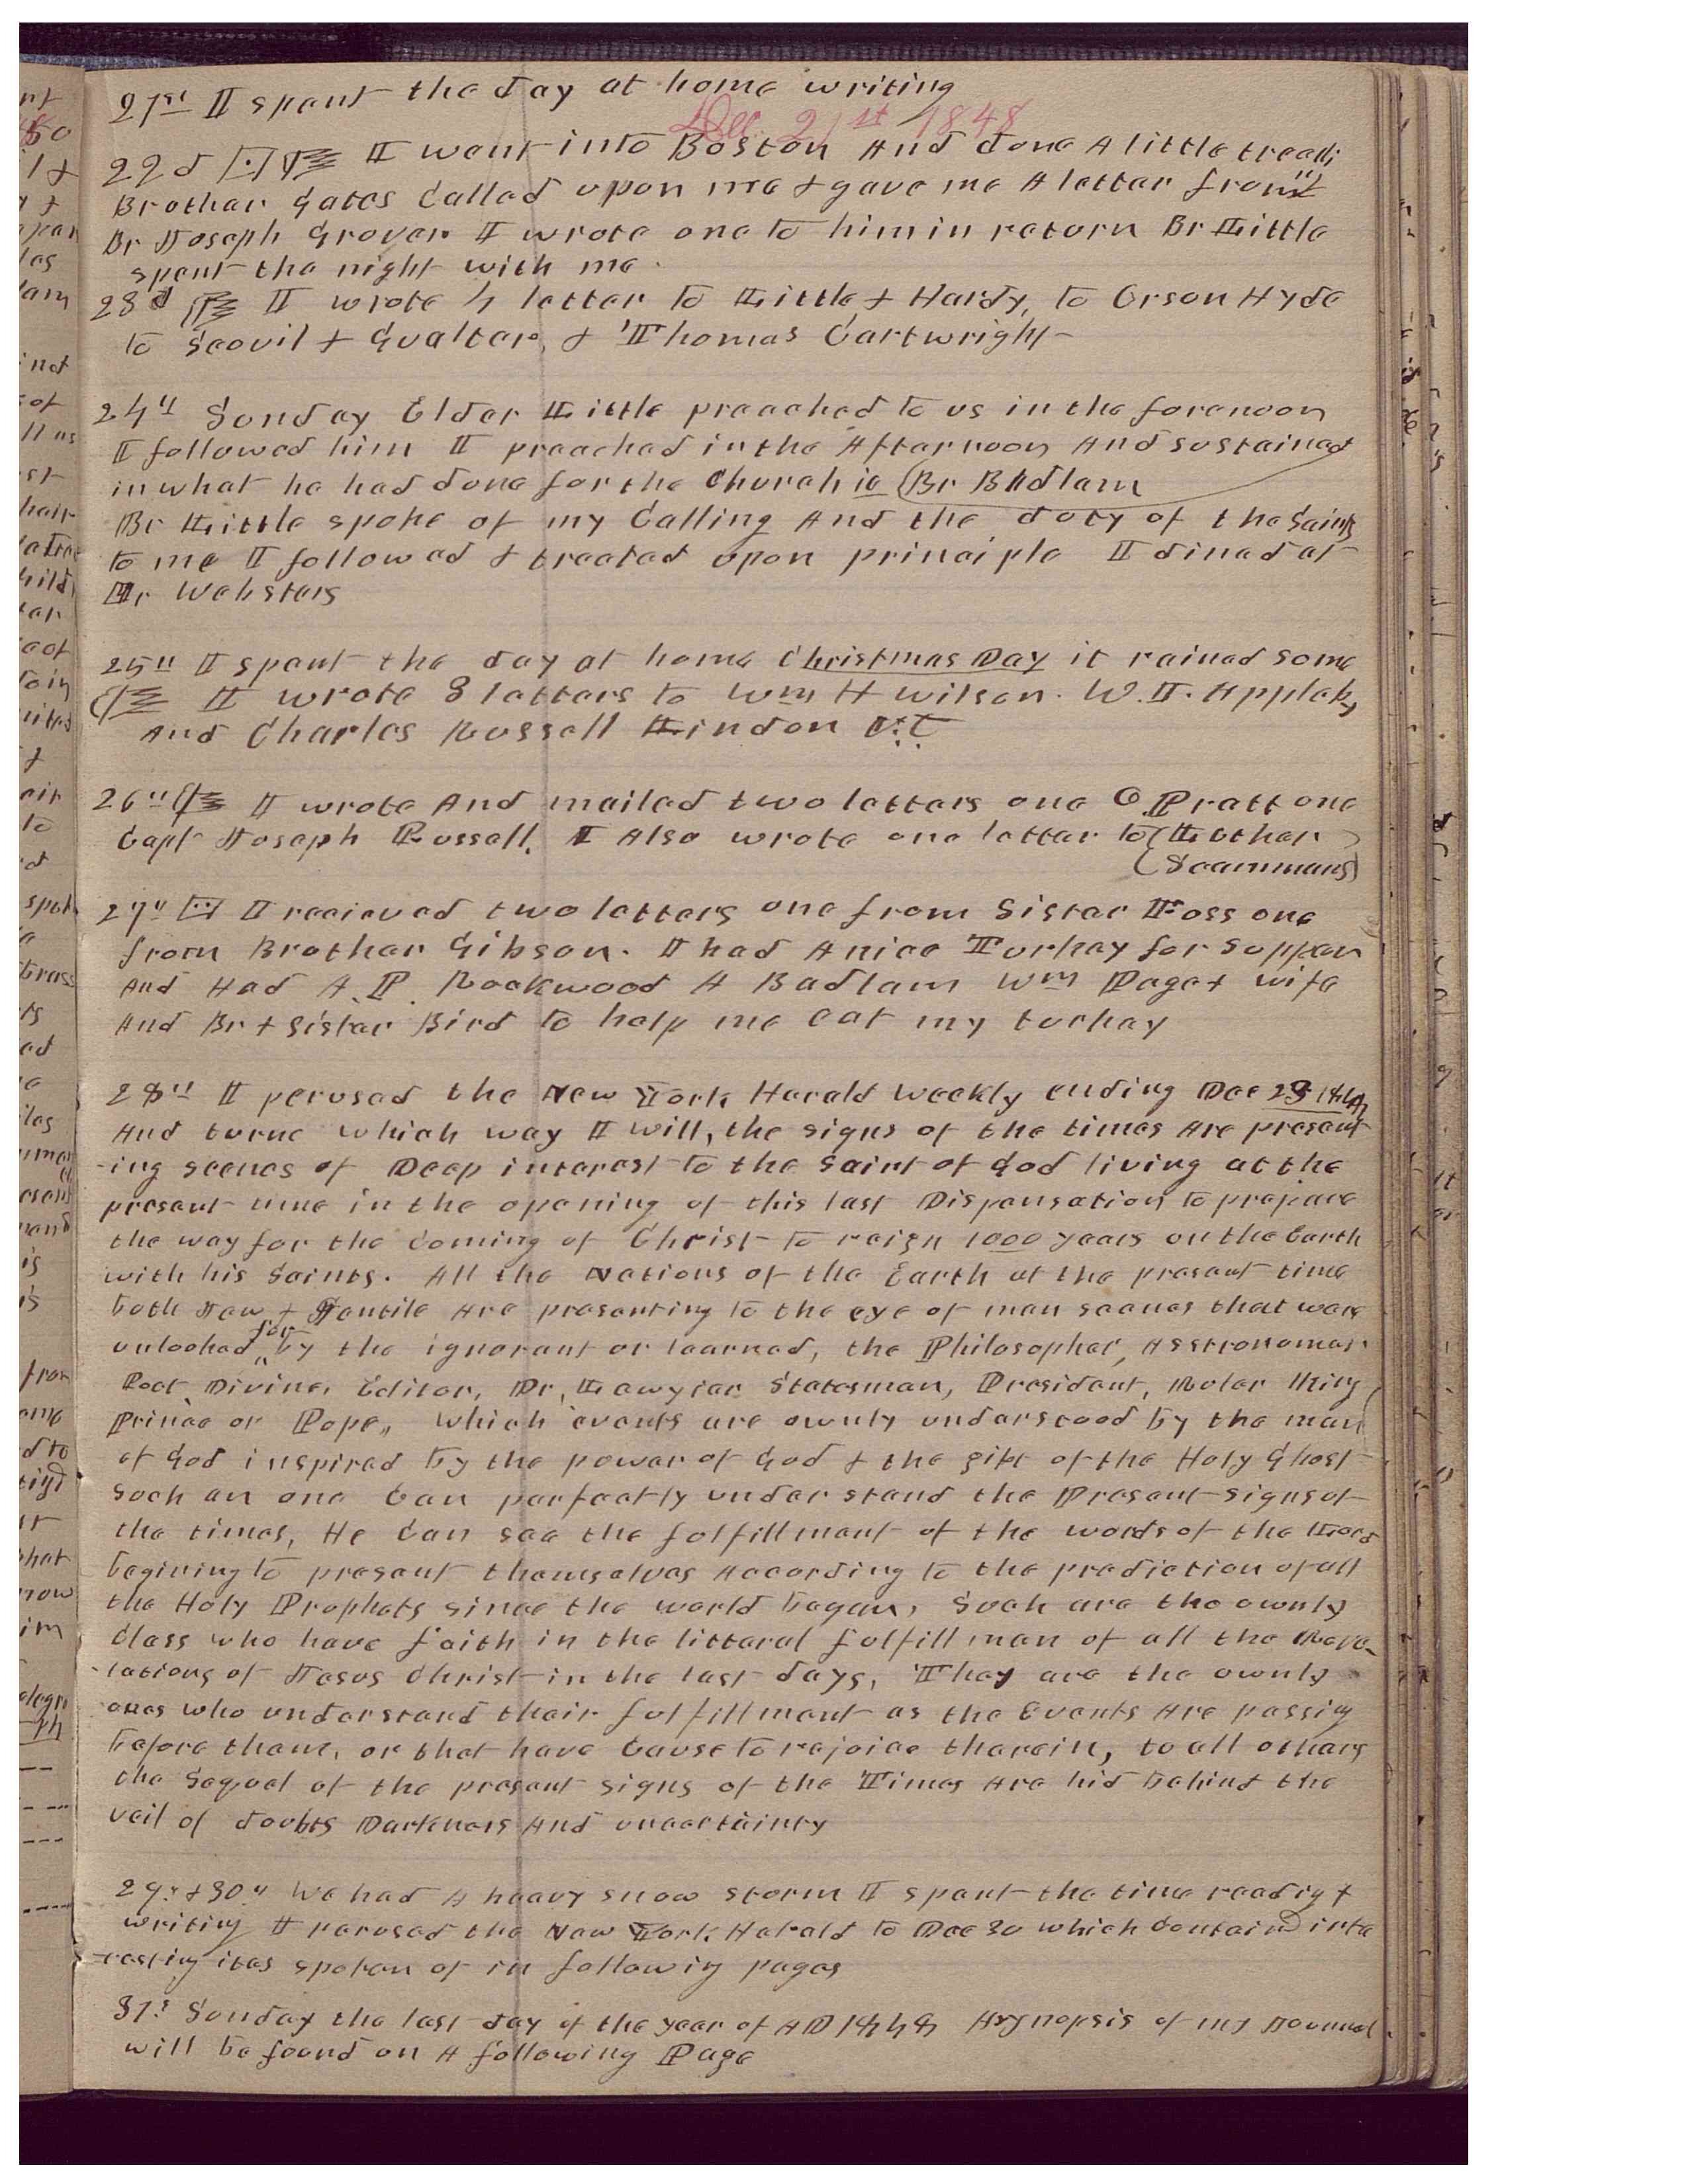 21st I spent the day at home writing
Dec. 21st 1848
22d I went into Boston And done A little treadi
Brother Gates Called upon me & gave me A letter from
Br Joseph Grover. I wrote one to him in return Br Little
spent the night with me.
23d I wrote 4 letter to Little & Hardy, to Orson Hyde
to Scovil & Gualter, & Thomas Cartwright
24" Sunday Elder Little preached to us in the forenoon
I followed him I preached in the Afternoon And sustained
in what he had done for the Church ie (Br Badlam
Br Little spoke of my Calling And the duty of the Saints
to me I followed & treated upon principle I dined at
Mr Websters
25" I spent the day at home Christmas Day it rained some
I wrote 3 letters to Wm H Wilson. W. I. Appleby
And Charles Russell Lindon V.T.
26" I wrote And mailed two letters one O Pratt one
Capt Joseph Russell. I Also wrote one letter to (Luther)
(Scammans)
27" I recieved two letters one from Sister Foss one
from Brother Gibson. I had A nice Turkey for supper
And Had A. P. Rockwood A Badlam Wm Page & wife
And Br & Sister Bird to help me eat my turkey
28" I perused the New York Harald Weekly ending Dec 23 1848
And turne which way I will, the signs of the times Are present
-ing scenes of Deep interest to the Saint of God living at the
present time in the opening of this last Dispensation to prepare
the way for the Coming of Christ to reign 1000 years on the Earth
with his Saints. All the Nations of the Earth at the present time
both Jew & Gentile Are presenting to the eye of man scenes that were
unlooked for by the ignorant or learned, the Philosopher, Asstronomer
Poet Divine, Editor, Dr, Lawyier Statesman, President, Ruler King
Prince or Pope,, which events are ownly understood by the man
of God inspired by the power of God & the gift of the Holy Ghost
such an one Can perfectly under stand the Present signs of
the times, He Can see the fulfillment of the words of the Lord
begining to present themselves According to the prediction of all
the Holy Prophets since the world began, Such are the ownly
Class who have faith in the litteral fulfillman of all the Reve-
-lations of Jesus Christ in the last days, They are the ownly
ones who understand their fulfillment as the Events Are passing
before them, or that have Cause to rejoice therein, to all others
the Sequel of the present signs of the Times Are hid behind the
veil of doubts Darkness And uncertainty
29" & 30" We had A heavy snow storm I spent the time readig &
writing I perused the New York Harald to Dec 30 which Contained inte
-resting ites spoken of in followig pages
31st Sunday the last day of the year of AD 1848 A synopsis of my Journal
will be found on A following Page